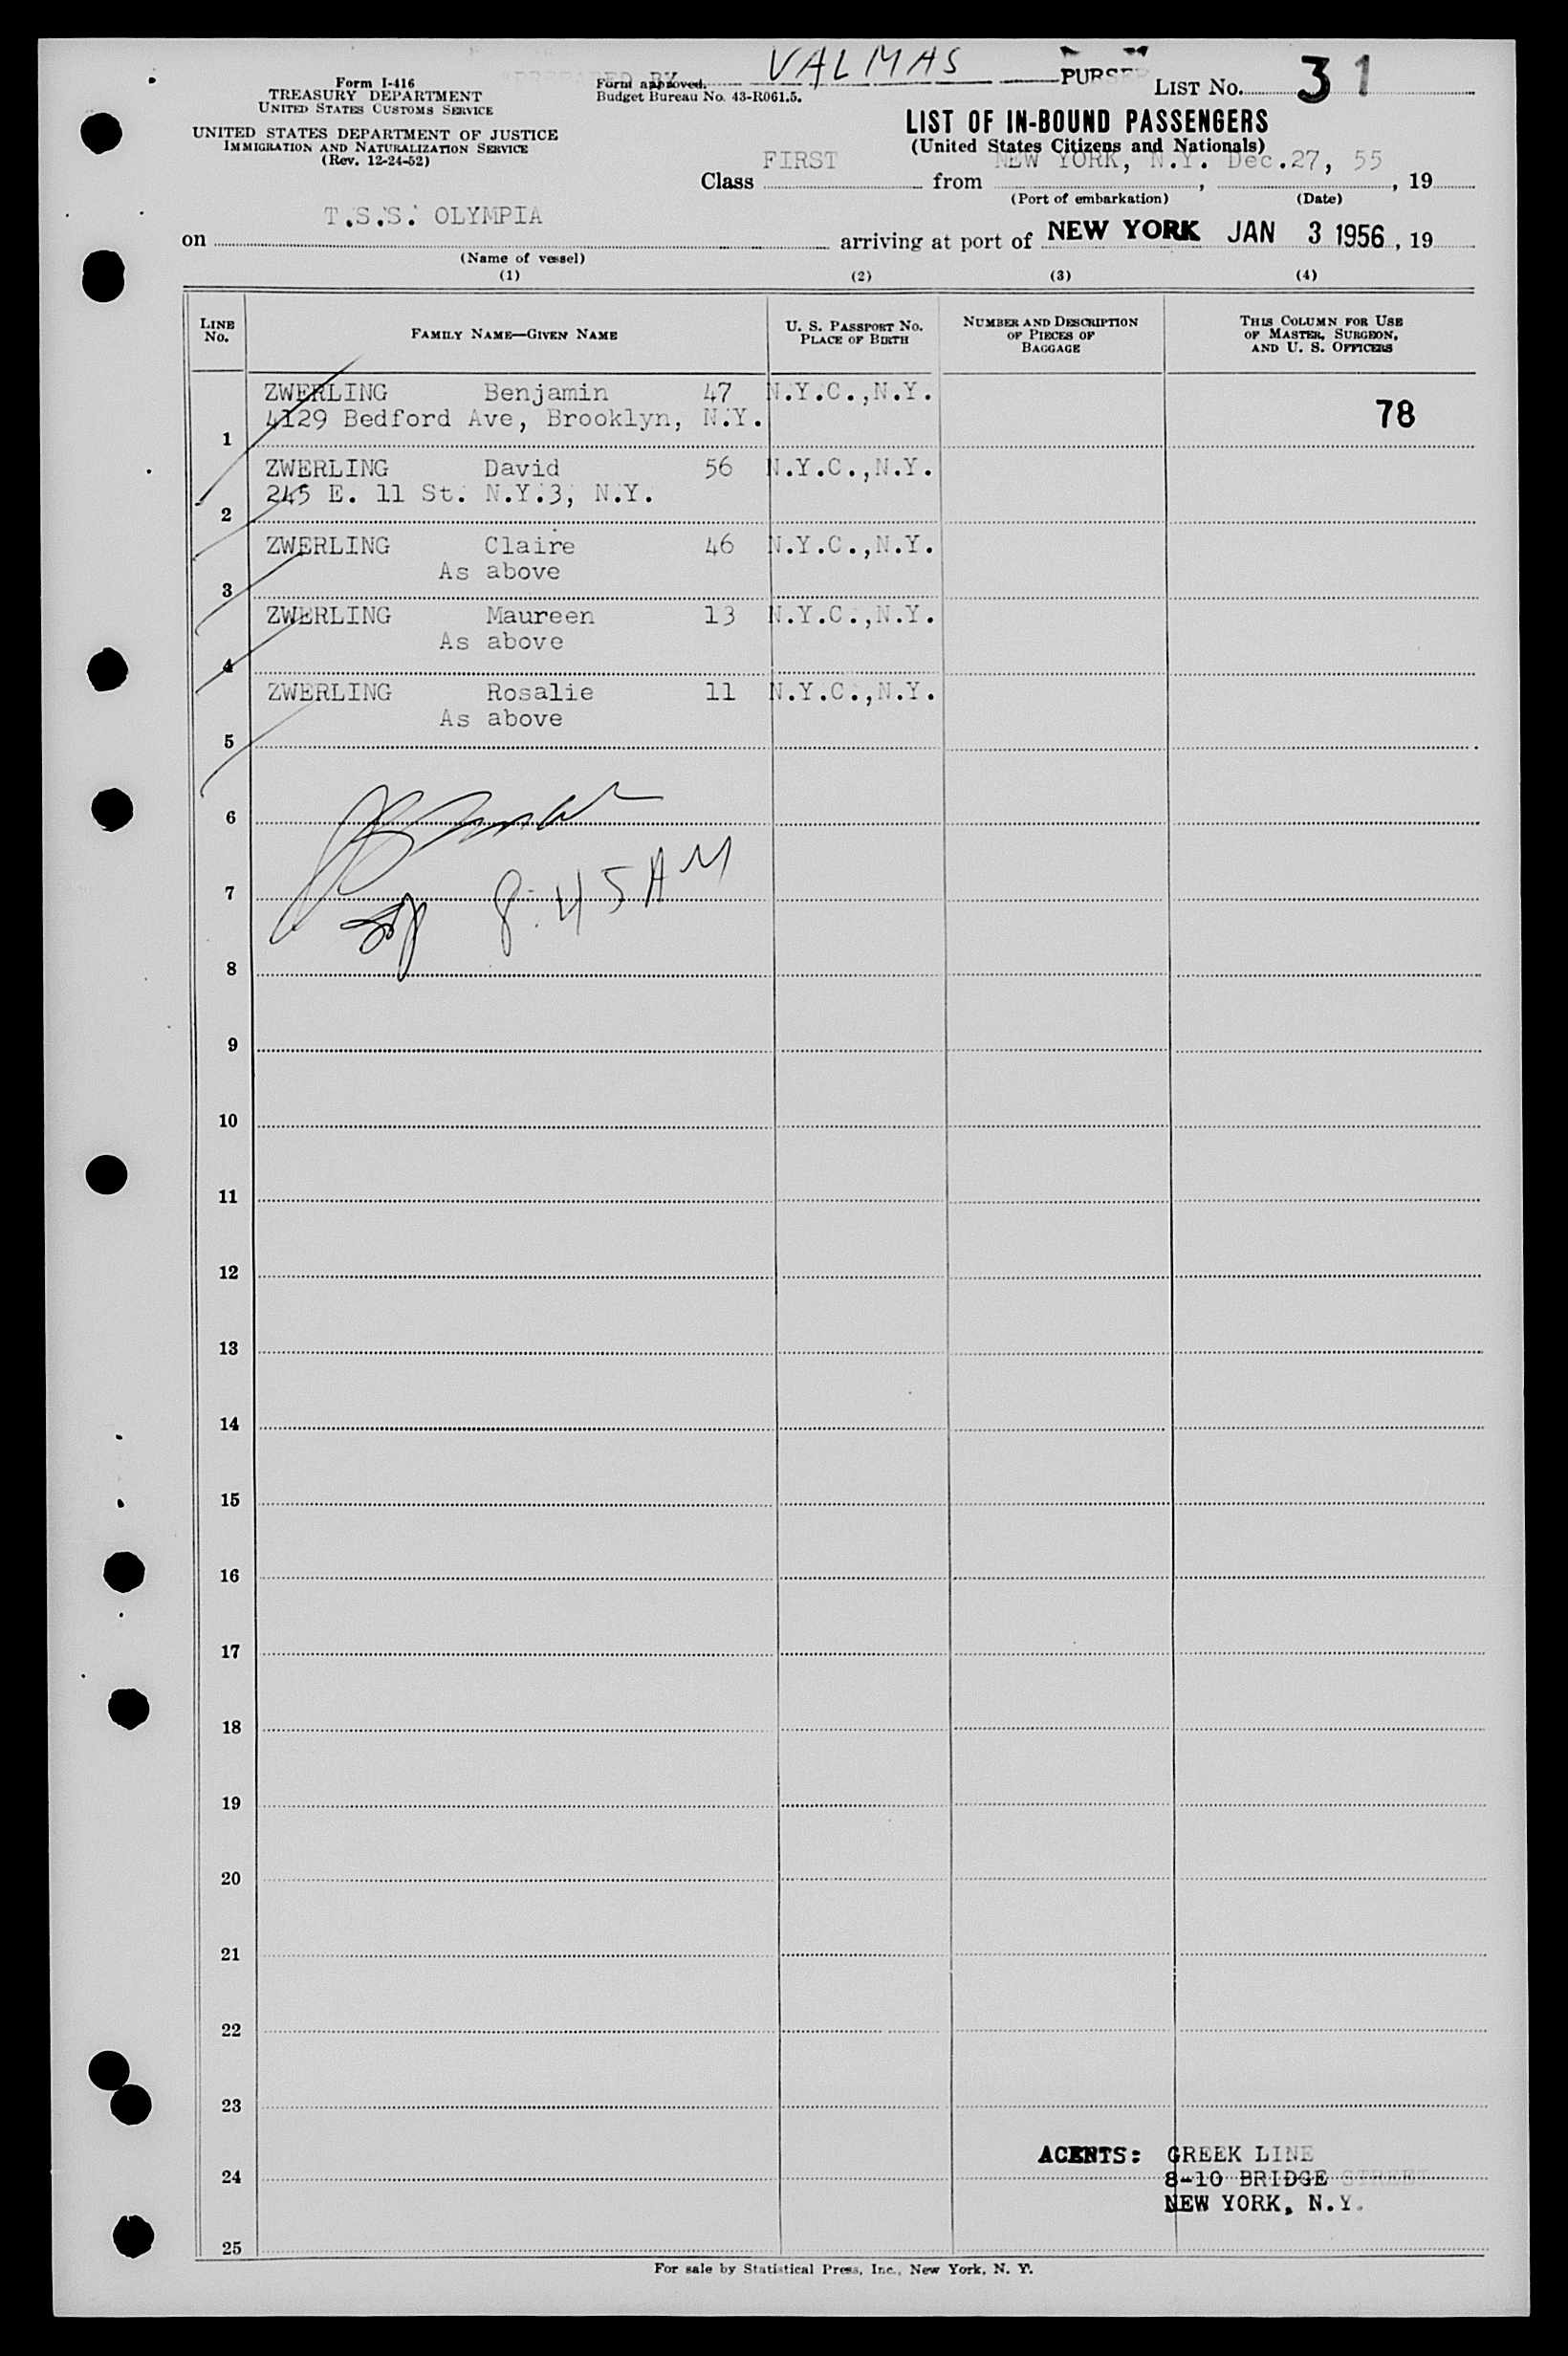 VALMAS PURSER
Form I-416
TREASURY DEPARTMENT
UNITED STATES CUSTOMS SERVICE
UNITED STATES DEPARTMENT OF JUSTICE
IMMIGRATION AND NATURALIZATION SERVICE
(Rev. 12-24-52)
Form approved.
Budget Bureau No. 43-R061.5.
LIST NO. 31
LIST OF IN-BOUND PASSENGERS
(United States Citizens and Nationals)
Class FIRST from NEW YORK, N.Y. Dec.27, 55, 19
(Port of embarkation) (Date)
on T.S.S. OLYMPIA arriving at port of NEW YORK JAN 3 1956, 19
(Name of vessel)
(1) (2) (3) (4)
LINE NO. FAMILY NAME—GIVEN NAME U. S. PASSPORT NO. PLACE OF BIRTH NUMBER AND DESCRIPTION OF PIECES OF BAGGAGE THIS COLUMN FOR USE OF MASTER, SURGEON, AND U. S. OFFICERS
ZWERLING Benjamin 47 N.Y.C.,N.Y.
4129 Bedford Ave, Brooklyn, N.Y. 78
1
ZWERLING David 56 N.Y.C.,N.Y.
245 E. 11 St. N.Y.3, N.Y.
2
ZWERLING Claire 46 N.Y.C.,N.Y.
As above
3
ZWERLING Maureen 13 N.Y.C.,N.Y.
As above
4
ZWERLING Rosalie 11 N.Y.C.,N.Y.
As above
5
6
7 8:45 AM
8
9
10
11
12
13
14
15
16
17
18
19
20
21
22
23
AGENTS: GREEK LINE
24 8-10 BRIDGE STREET
NEW YORK, N.Y.
25
For sale by Statistical Press, Inc., New York, N. Y.